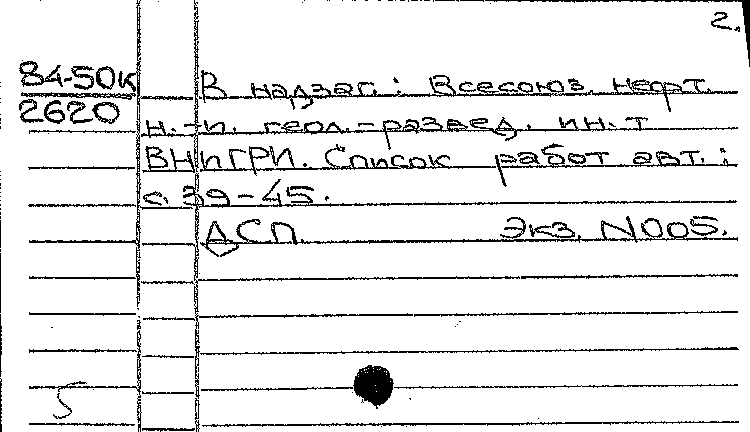 2.
84-50к
2620
В надзаг.: Всесоюз. нефт.
н.-и. геол.-развед. ин-т
ВНИГРИ. Список работ авт.:
с. 39-45.
ДСП. Экз. N005.
5